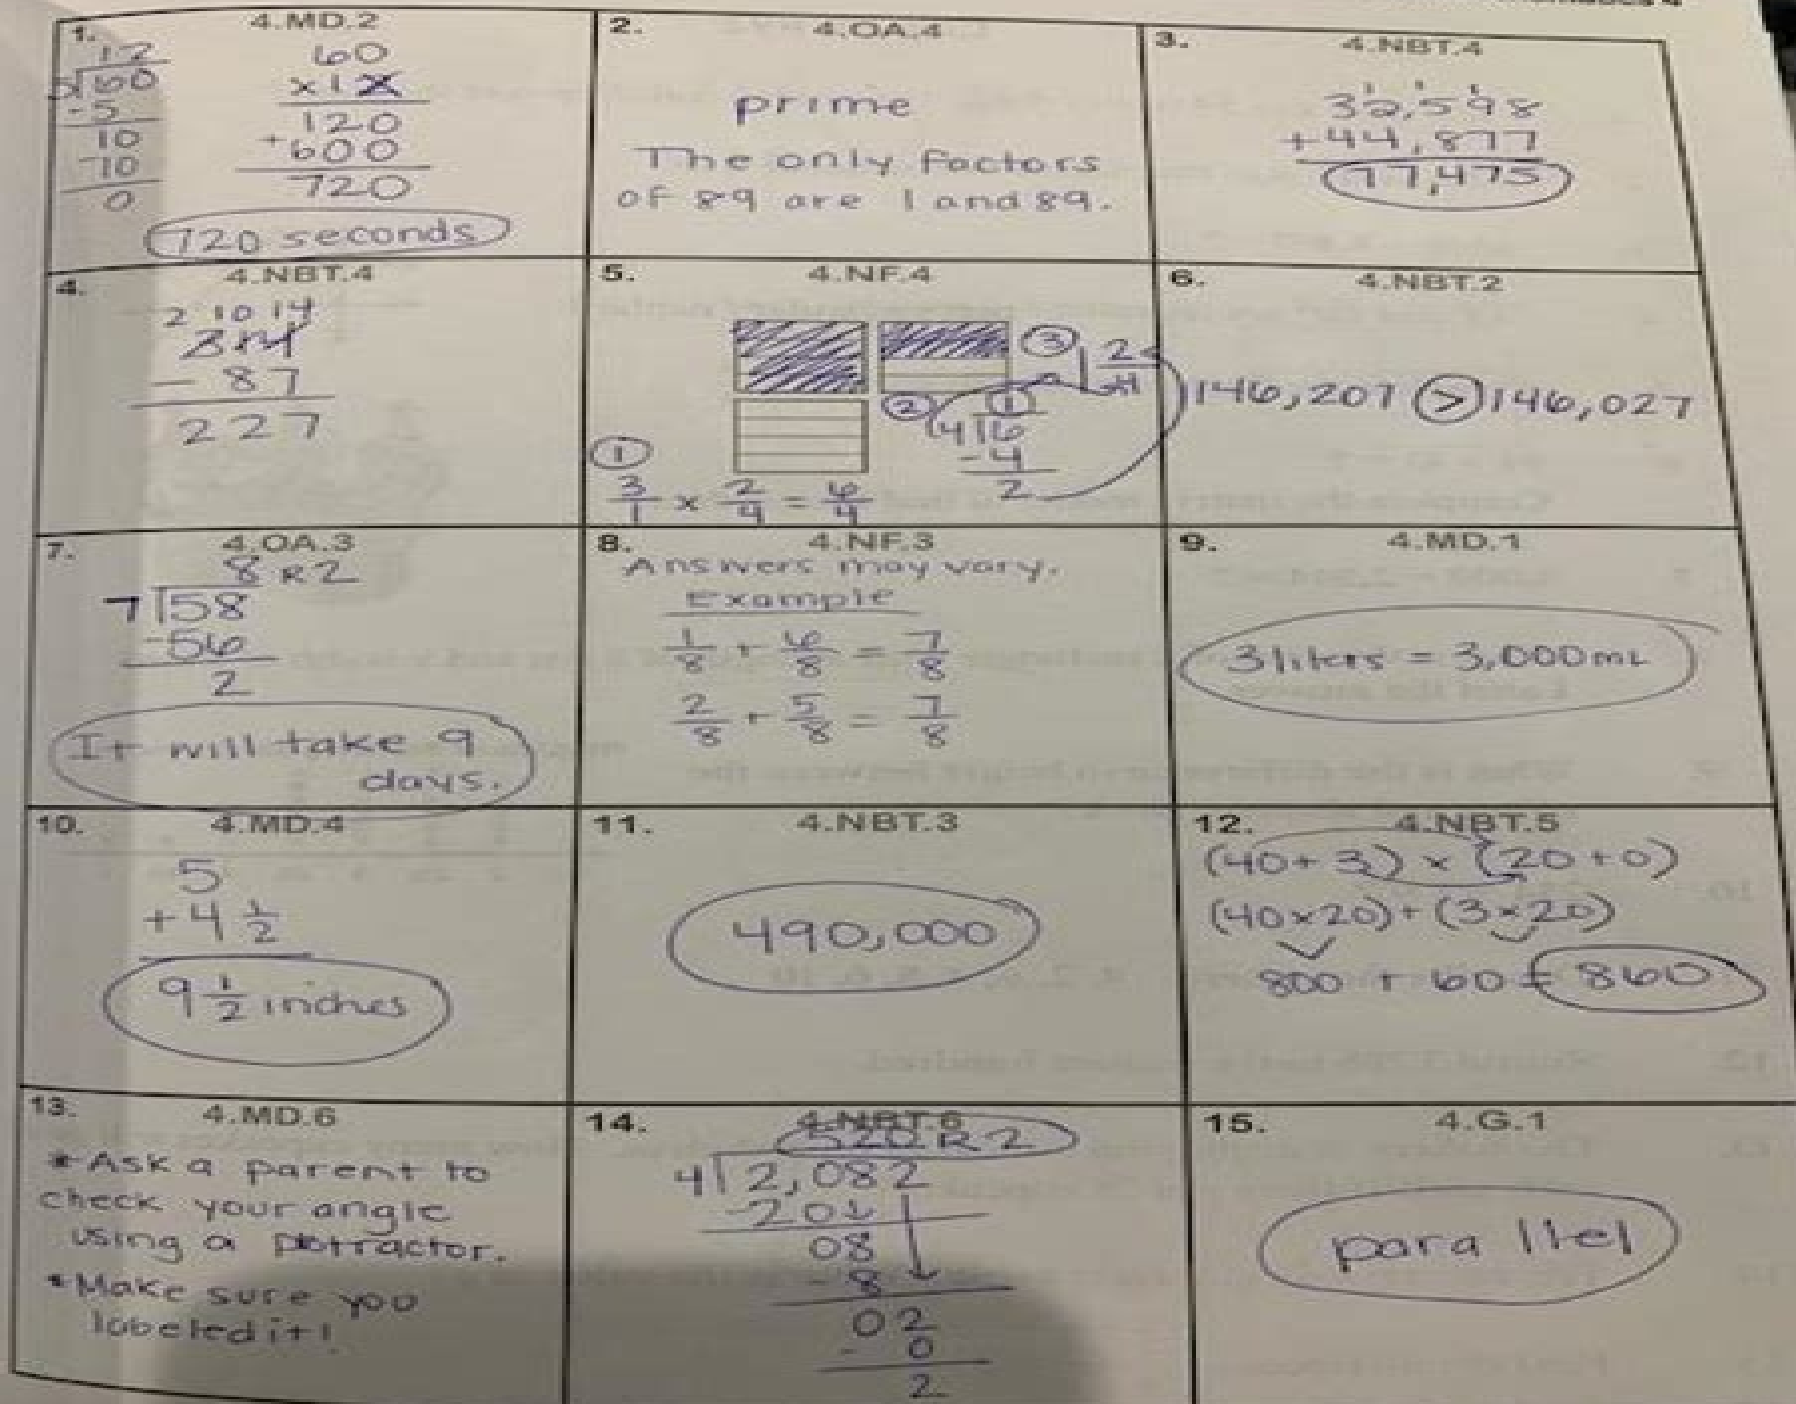 1. 4.MD.2
12
5)60
-5
10
-10
0
60
x12
120
+600
720
720 seconds
2. 4.OA.4
prime
The only factors
of 89 are 1 and 89.
3. 4.NBT.4
1 1 1
32,598
+44,877
77,475
4. 4.NBT.4
2 10 14
314
- 87
227
5. 4.NF.4
③ 1 2/4
② 1
4)6
-4
2
①
3/1 x 2/4 = 6/4
6. 4.NBT.2
146,207 > 146,027
7. 4.OA.3
8 R2
7)58
-56
2
It will take 9
days.
8. 4.NF.3
Answers may vary.
Example
1/8 + 6/8 = 7/8
2/8 + 5/8 = 7/8
9. 4.MD.1
3 liters = 3,000 mL
10. 4.MD.4
5
+4 1/2
9 1/2 inches
11. 4.NBT.3
490,000
12. 4.NBT.5
(40+3) x (20+0)
(40x20)+(3x20)
800 + 60 = 860
13. 4.MD.6
*Ask a parent to
check your angle
using a protractor.
*Make sure you
labeled it!
14. 4.NBT.6
520 R2
4)2,082
-20↓
08
-8
02
- 0
2
15. 4.G.1
parallel